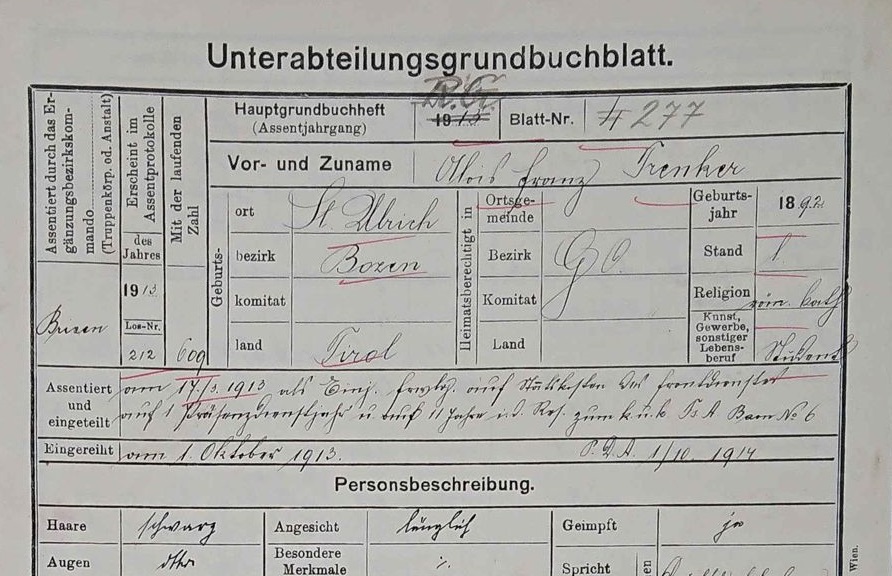 Unterabteilungsgrundbuchblatt.
Assentiert durch das Ergänzungsbezirkskommando (Truppenkörp. od. Anstalt)
Brixen
Erscheint im Assentprotokolle
des Jahres
1913
Los-Nr.
212
Mit der laufenden Zahl
609
Hauptgrundbuchheft
(Assentjahrgang)
R.G.
1913
Blatt-Nr. # 277
Vor- und Zuname Alois Franz Trenker
Geburts-
ort St. Ulrich
bezirk Bozen
komitat
land Tirol
Heimatsberechtigt in
Ortsge-
meinde
Bezirk
Komitat
Land
Geburts-
jahr 1892
Stand l.
Religion röm. kath
Kunst,
Gewerbe,
sonstiger
Lebens-
beruf Student
Assentiert
und
eingeteilt
am 17/3. 1913 als Einj. Freiwlg. auf Staatskosten des Frontdienstes
auf 1 Präsenzdienstjahr u. auf 11 Jahre i. d. Res. zum k.u.k. Fs A Baon No 6
Eingereiht am 1. Oktober 1913. P.D.A. 1/10. 1914
Personsbeschreibung.
Haare schwarz Angesicht länglich Geimpft ja
Augen dtto Besondere
Merkmale ./. Spricht
Wien.